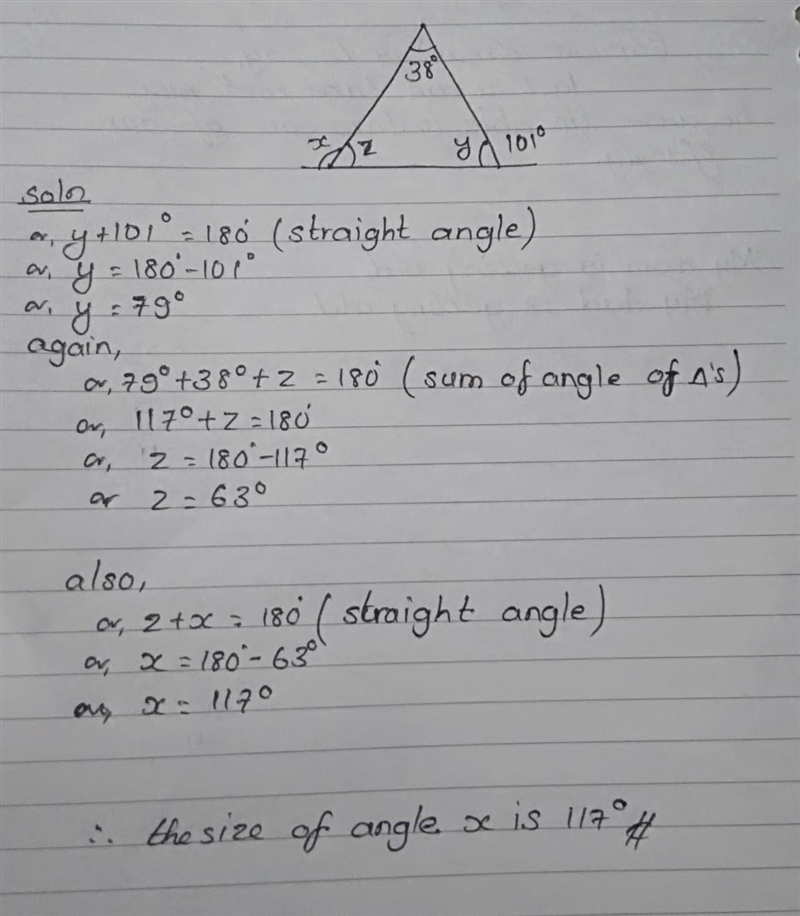 38°
x z y 101°
soln
or, y+101° = 180° (straight angle)
or, y = 180°-101°
or, y = 79°
again,
or, 79°+38°+z = 180° (sum of angle of Δ's)
or, 117°+z = 180°
or, z = 180°-117°
or z = 63°
also,
or, z+x = 180° (straight angle)
or, x = 180°- 63°
or, x = 117°
∴ the size of angle x is 117° #